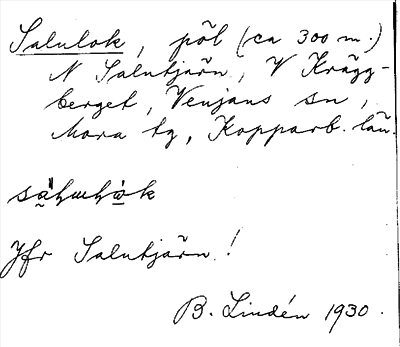 Salulok, pöl (ca 300 m.)
N Salutjärn, V Krägg-
berget, Venjans sn,
Mora tg, Kopparb. län.
Jfr Salutjärn!
B. Lindén 1930.